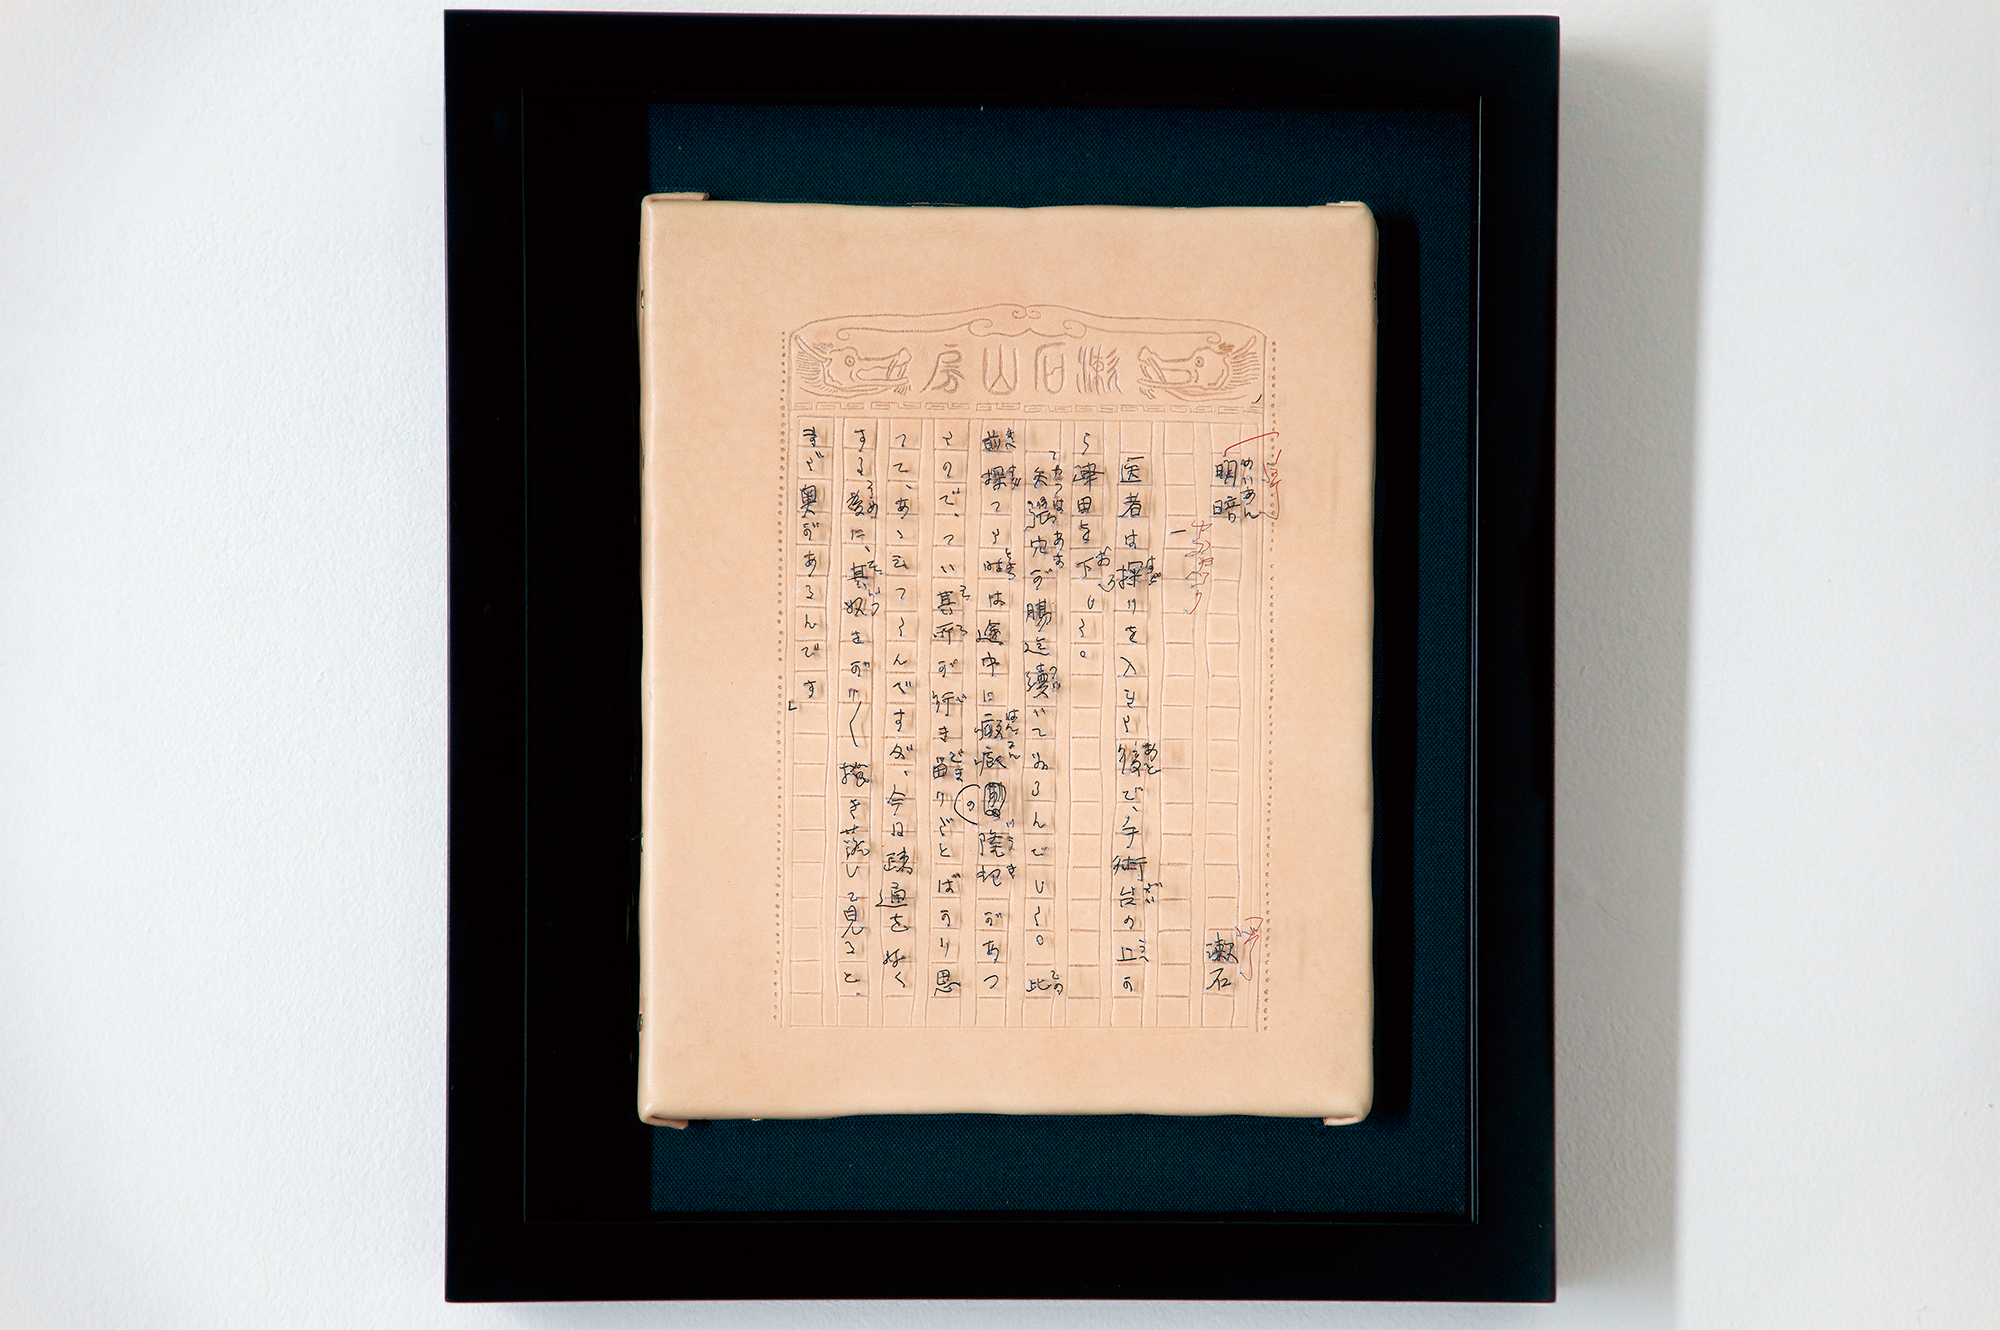 漱石山房
明暗 漱石
一
医者は探りを入れた後で、手術台の上か
ら津田を下した。
「矢張穴が腸迄續いてゐるんでした。此
前探つた時は途中に瘢痕の隆起があつ
たので、つい其所が行き留りだとばかり思
つて、あゝ云つたんですが、今日疎通を好く
する為に、其奴をがり〳〵掻き落して見ると、
まだ奥があるんです」